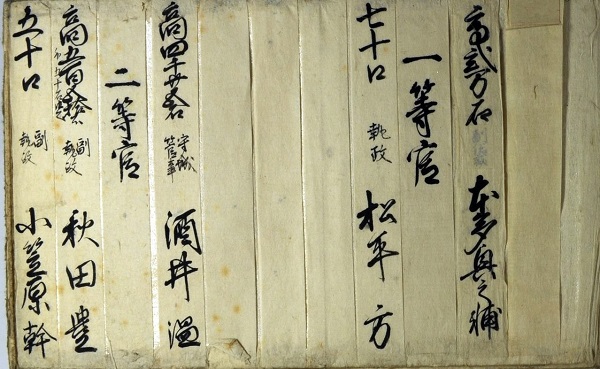 高弐万石 本多興之輔
一等官
七十口 執政 松平 方
高四千 石 守城 管事 酒井 温
二等官
高 副 執政 秋田 豊
五十口 副 執政 小笠原 幹